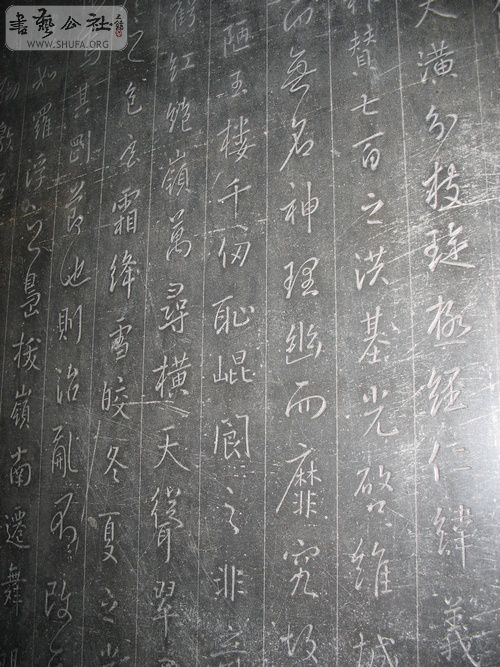 書藝公社
WWW.SHUFA.ORG
天潢分枝璇極經仁緯義
贊七百之洪基光啓維城
而無名神理幽而靡究故
陋玉樓千仞恥崐閬之非
紅絶嶺萬尋橫天聳翠
之色玄霜絳雪皎冬夏之
其剛節也則治亂不改
知羅浮之島拔嶺南遷舞